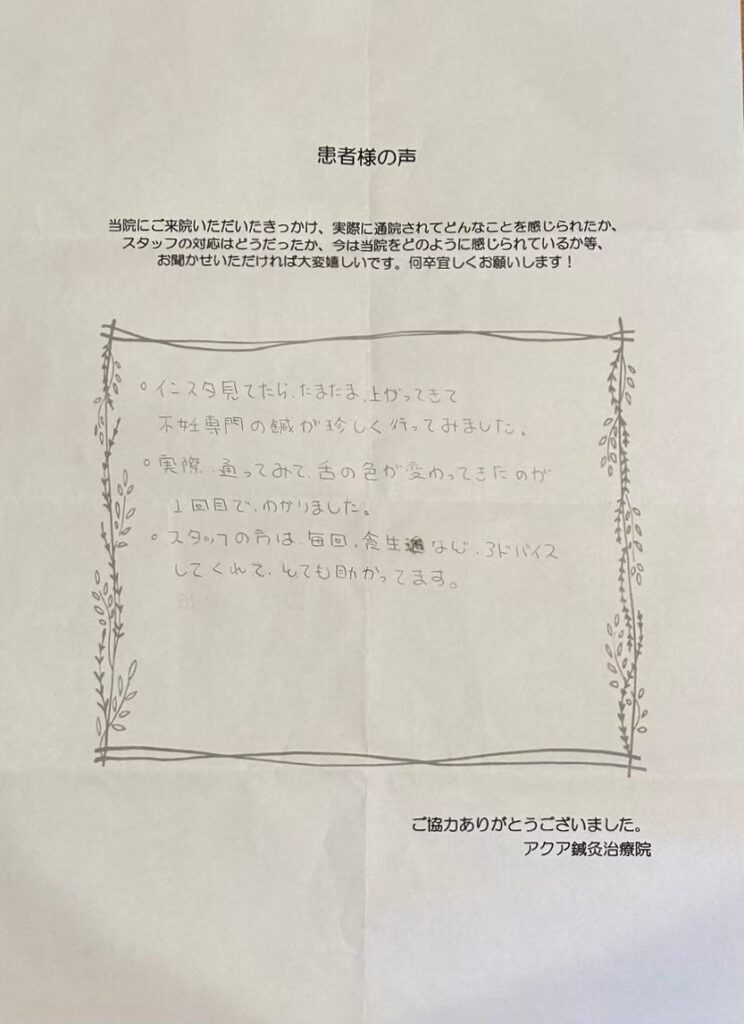 患者様の声
当院にご来院いただいたきっかけ、実際に通院されてどんなことを感じられたか、
スタッフの対応はどうだったか、今は当院をどのように感じられているか等、
お聞かせいただければ大変嬉しいです。何卒宜しくお願いします！
○インスタ見てたら、たまたま、上がってきて
不妊専門の鍼が珍しく行ってみました。
○実際、通ってみて、舌の色が変わってきたのが
1回目で、わかりました。
○スタッフの方は、毎回、食生活など、アドバイス
してくれて、とても助かってます。
ご協力ありがとうございました。
アクア鍼灸治療院